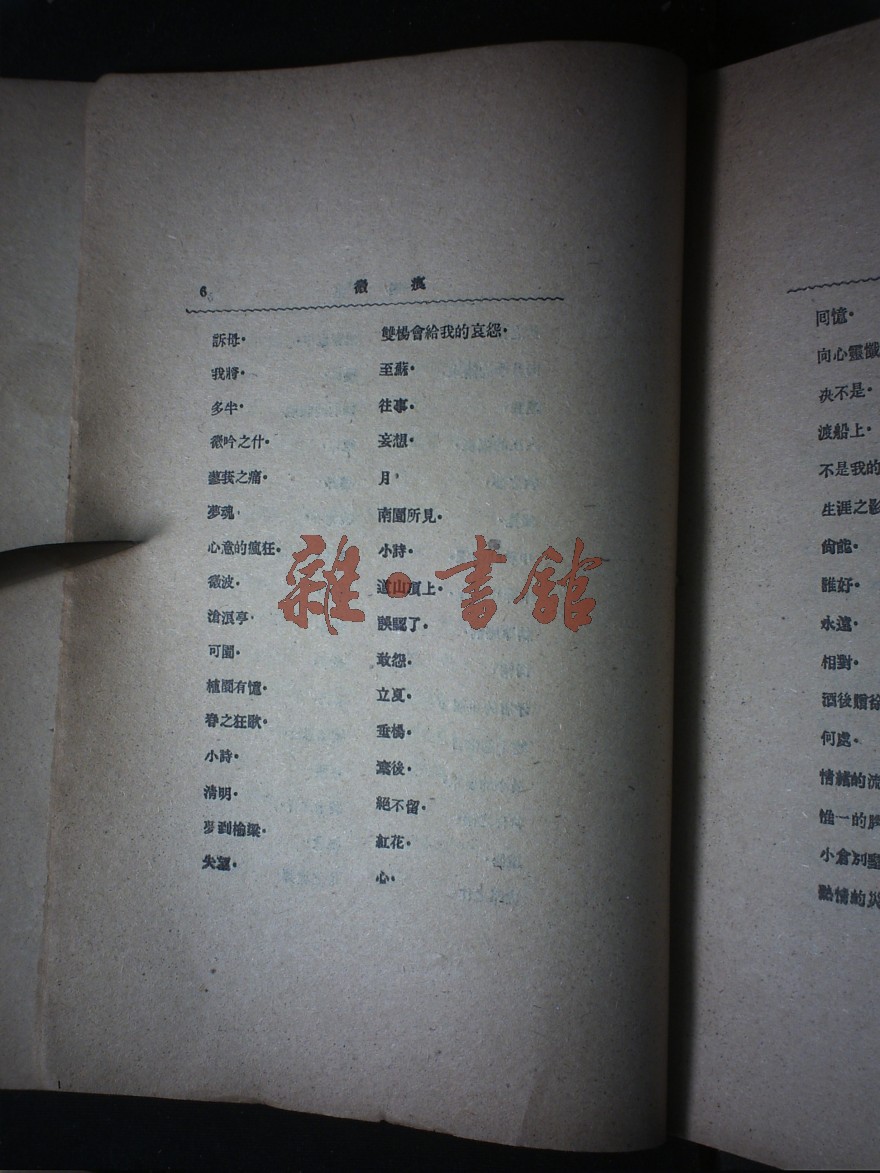 6 微痕
訴母·
我將·
多半·
微吟之什·
蓼莪之痛·
夢魂·
心意的瘋狂·
微波·
滄浪亭·
可園·
植園有憶·
春之狂歌·
小詩·
清明·
夢到榆梁·
失望·
雙楊會給我的哀怨·
至蘇·
往事·
妄想·
月·
南園所見·
小詩·
道山頂上·
誤認了·
敢怨·
立夏·
垂楊·
棄後·
絕不留·
紅花·
心·
雜·書館
同憶·
向心靈懺
决不是·
渡船上·
不是我的
生涯之影
尙能·
誰好·
永遠·
相對·
酒後贈徐
何處·
情緒的流
惟一的
小倉別墅
熱情的